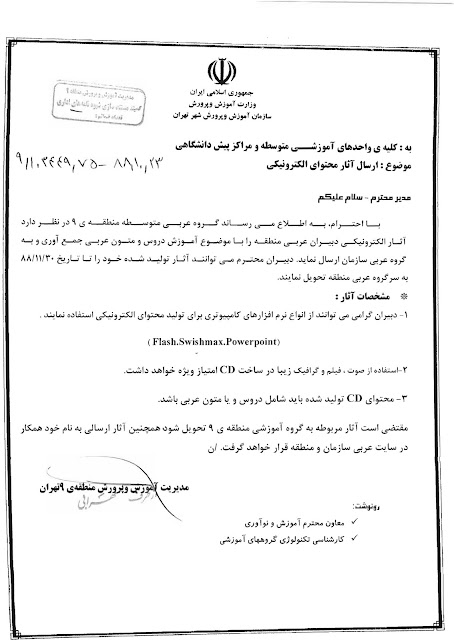 جمهوری اسلامی ایران
وزارت آموزش وپرورش
سازمان آموزش وپرورش شهر تهران
مدیریت آموزش و پرورش منطقه ۹
به : کلیه ی واحدهای آموزشی متوسطه و مراکز پیش دانشگاهی
موضوع : ارسال آثار محتوای الکترونیکی
مدیر محترم - سلام علیکم
با احترام، به اطلاع می رساند گروه عربی متوسطه منطقه ی ۹ در نظر دارد
آثار الکترونیکی دبیران عربی منطقه را با موضوع آموزش دروس و متون عربی جمع آوری و به
گروه عربی سازمان ارسال نماید. دبیران محترم می توانند آثار تولید شده خود را تا تاریخ ۸۸/۱۱/۳۰
به سرگروه عربی منطقه تحویل نمایند.
* مشخصات آثار :
۱- دبیران گرامی می توانند از انواع نرم افزارهای کامپیوتری برای تولید محتوای الکترونیکی استفاده نمایند .
( Flash.Swishmax.Powerpoint)
۲-استفاده از صوت ، فیلم و گرافیک زیبا در ساخت CD امتیاز ویژه خواهد داشت.
۳- محتوای CD تولید شده باید شامل دروس و یا متون عربی باشد.
مقتضی است آثار مربوطه به گروه آموزشی منطقه ی ۹ تحویل شود همچنین آثار ارسالی به نام خود همکار
در سایت عربی سازمان و منطقه قرار خواهد گرفت. /ن
مدیریت آموزش وپرورش منطقه‌ی ۹تهران
رونوشت:
✓ معاون محترم آموزش و نوآوری
✓ کارشناسی تکنولوژی گروههای آموزشی